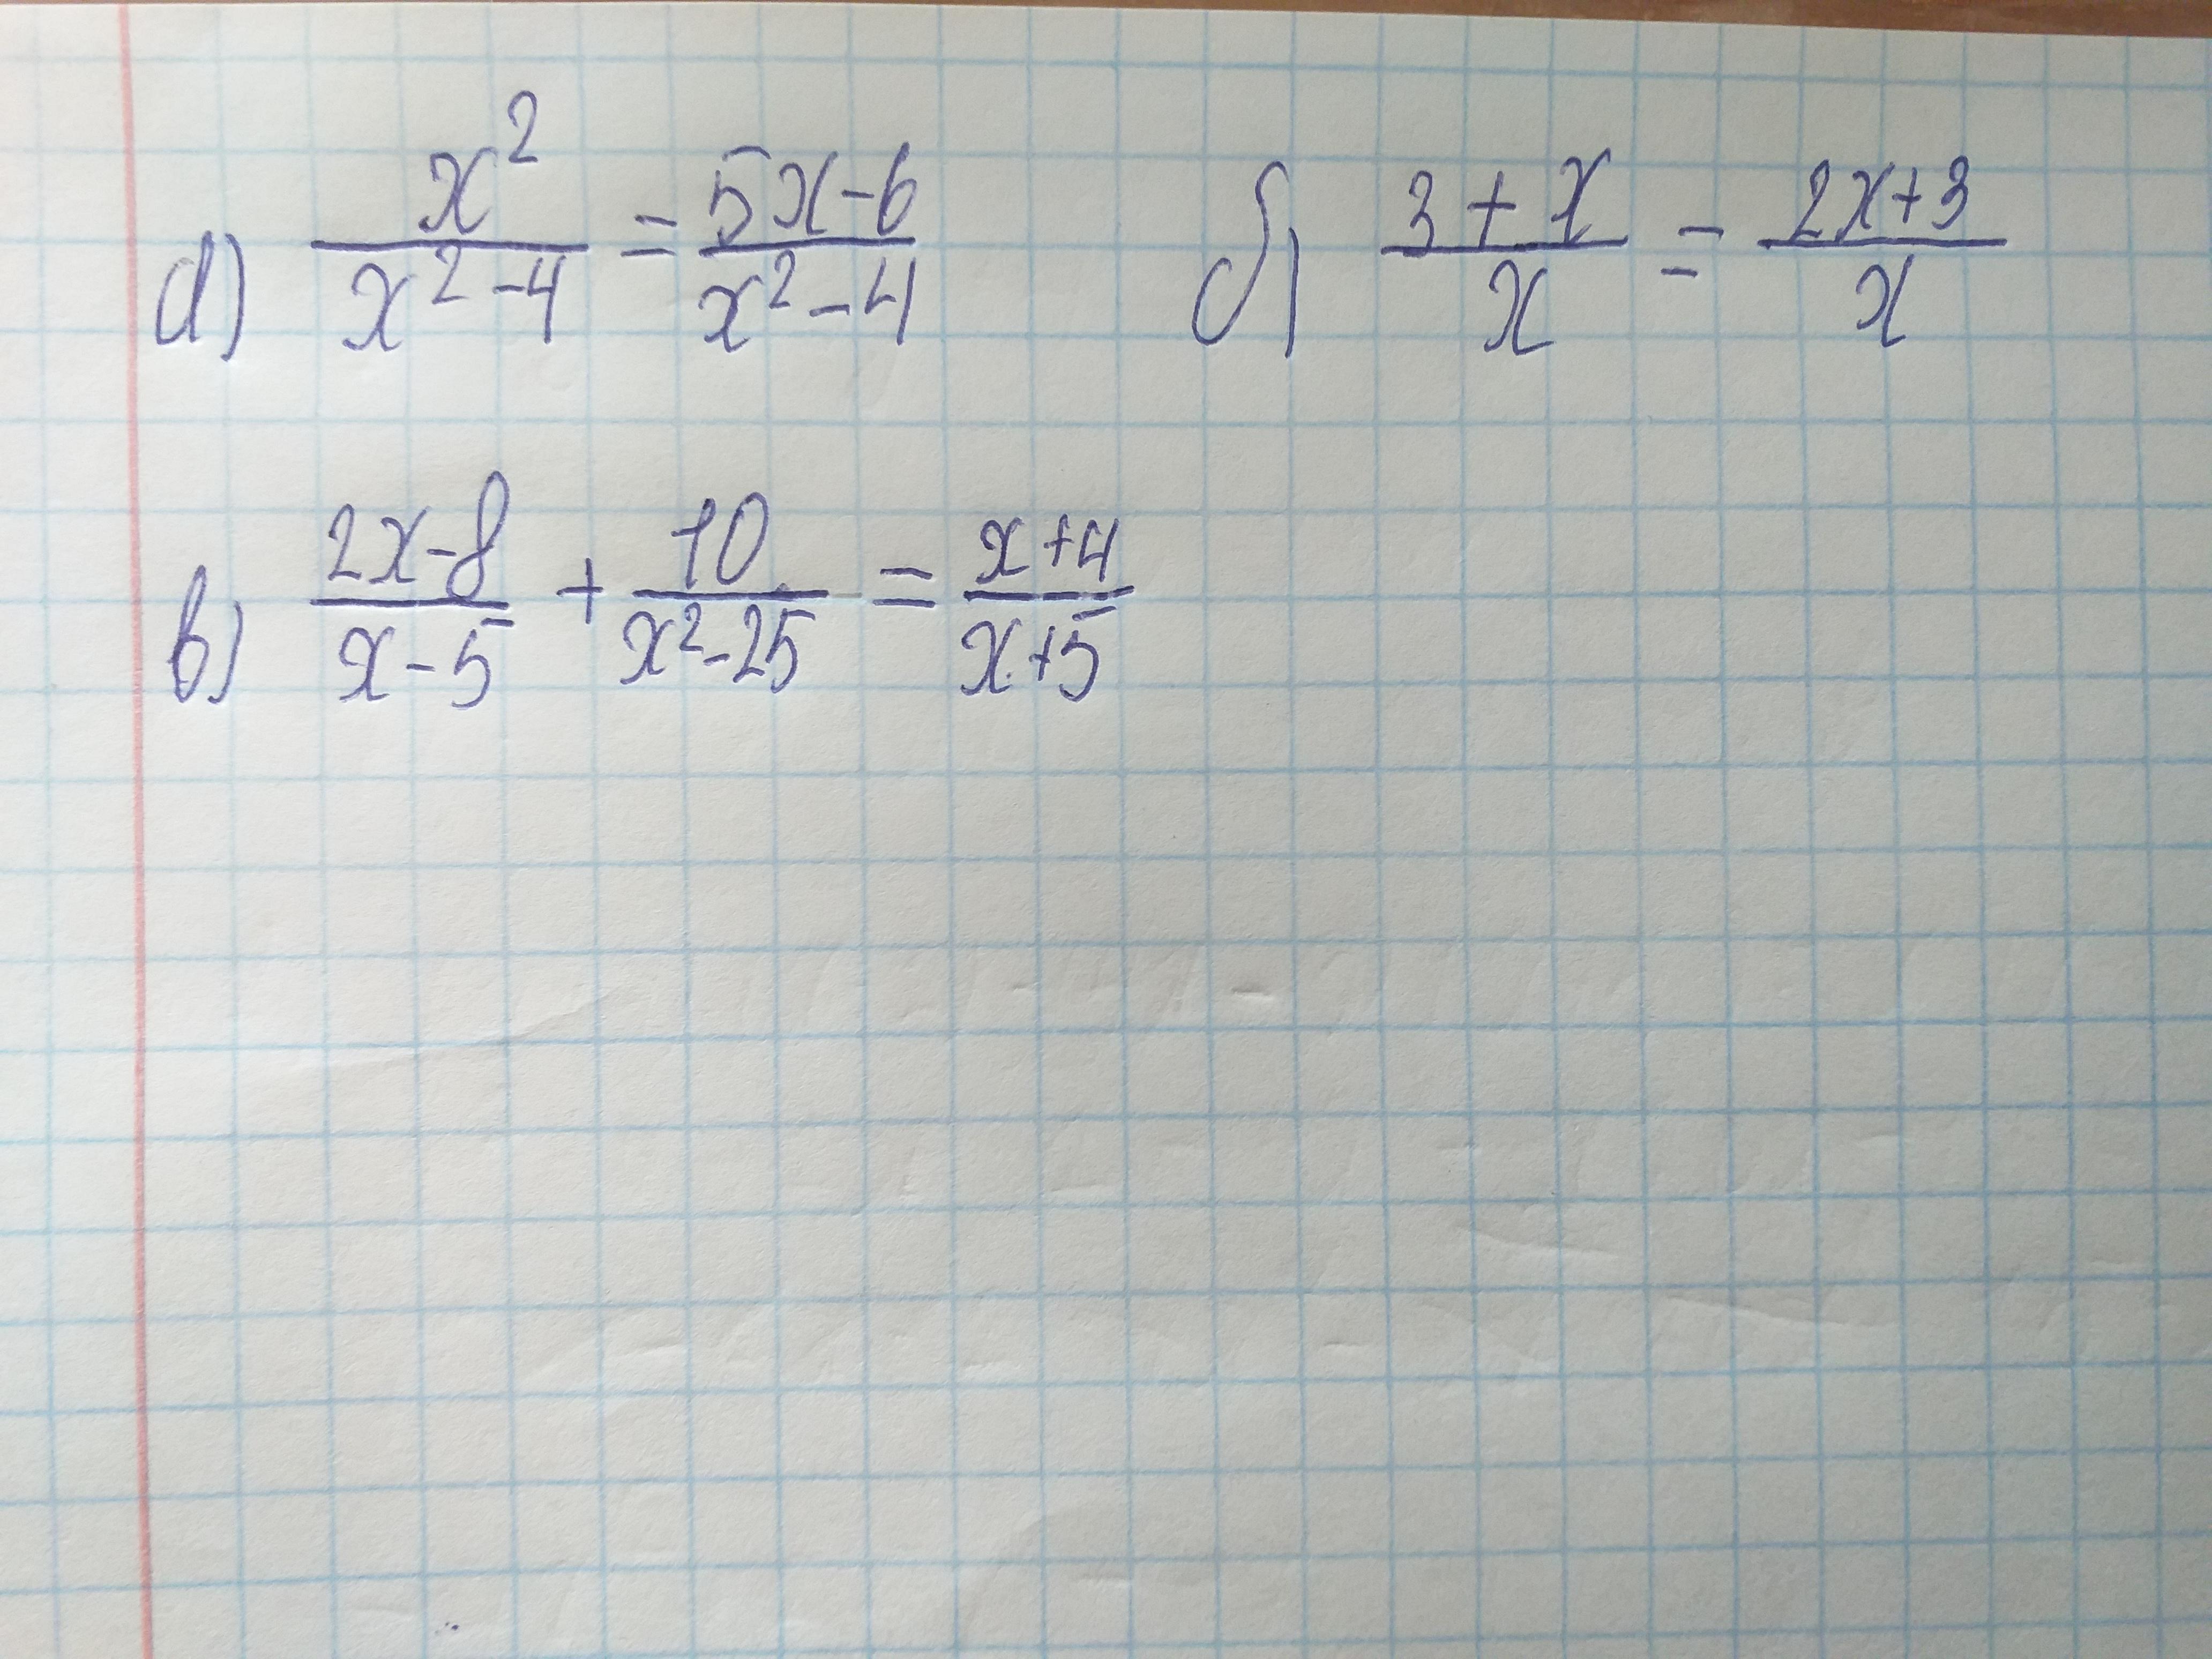 а) x²/(x²-4) = (5x-6)/(x²-4) б) (3+x)/x = (2x+3)/x
в) (2x-8)/(x-5) + 10/(x²-25) = (x+4)/(x+5)